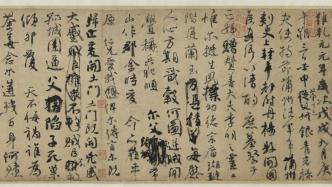 維乾元元年歲次戊戌九月庚
午朔三日壬申第十三叔銀青光祿
夫使持節蒲州諸軍事蒲州
刺史上輕車都尉丹楊縣開國
侯真卿以清酌庶羞祭于
亡姪贈贊善大夫季明之靈曰
惟爾挺生夙標幼德宗廟瑚璉
階庭蘭玉每慰
人心方期戩穀何圖逆賊間
釁稱兵犯順爾父竭誠常
山作郡余時受命亦在平
原仁兄愛我俾爾傳言爾既
歸止爰開土門土門既開凶威
大蹙賊臣不救
孤城圍逼父陷子死巢
傾卵覆天不悔禍誰為
荼毒念爾遘殘百身何贖